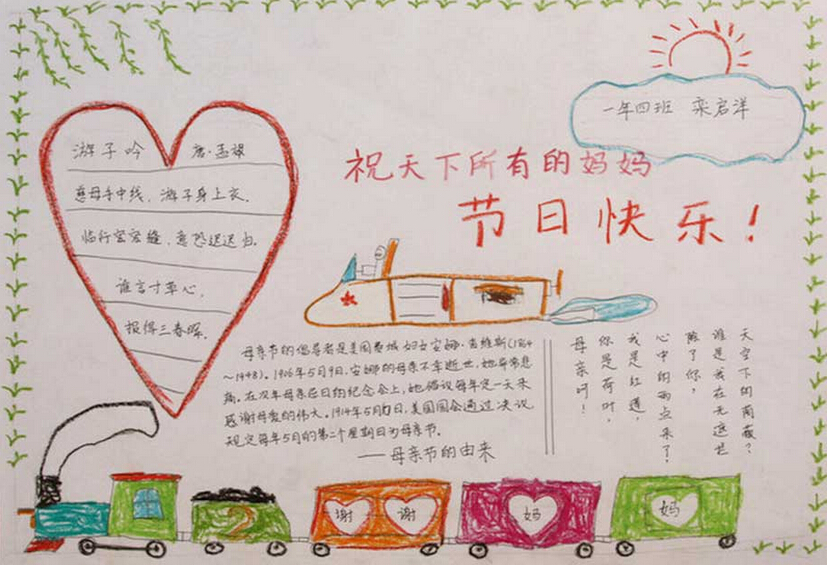 一年四班 栾启洋
祝天下所有的妈妈
节日快乐!
游子吟 唐·孟郊
慈母手中线,游子身上衣。
临行密密缝,意恐迟迟归。
谁言寸草心,
报得三春晖。
母亲节的倡导者是美国费城妇女安娜·查维斯(1864
~1948).1906年5月9日,安娜的母亲不幸逝世,她异常悲
痛。在次年母亲忌日的纪念会上,她倡议每年定一天来
感谢母爱的伟大。1914年5月日,美国国会通过决议
规定每年5月的第二个星期日为母亲节。
——母亲节的由来
母亲呵!
你是荷叶,
我是红莲,
心中的雨点来了?
除了你,
谁是我在无遮拦
天空下的荫蔽?
2
谢 谢 妈 妈